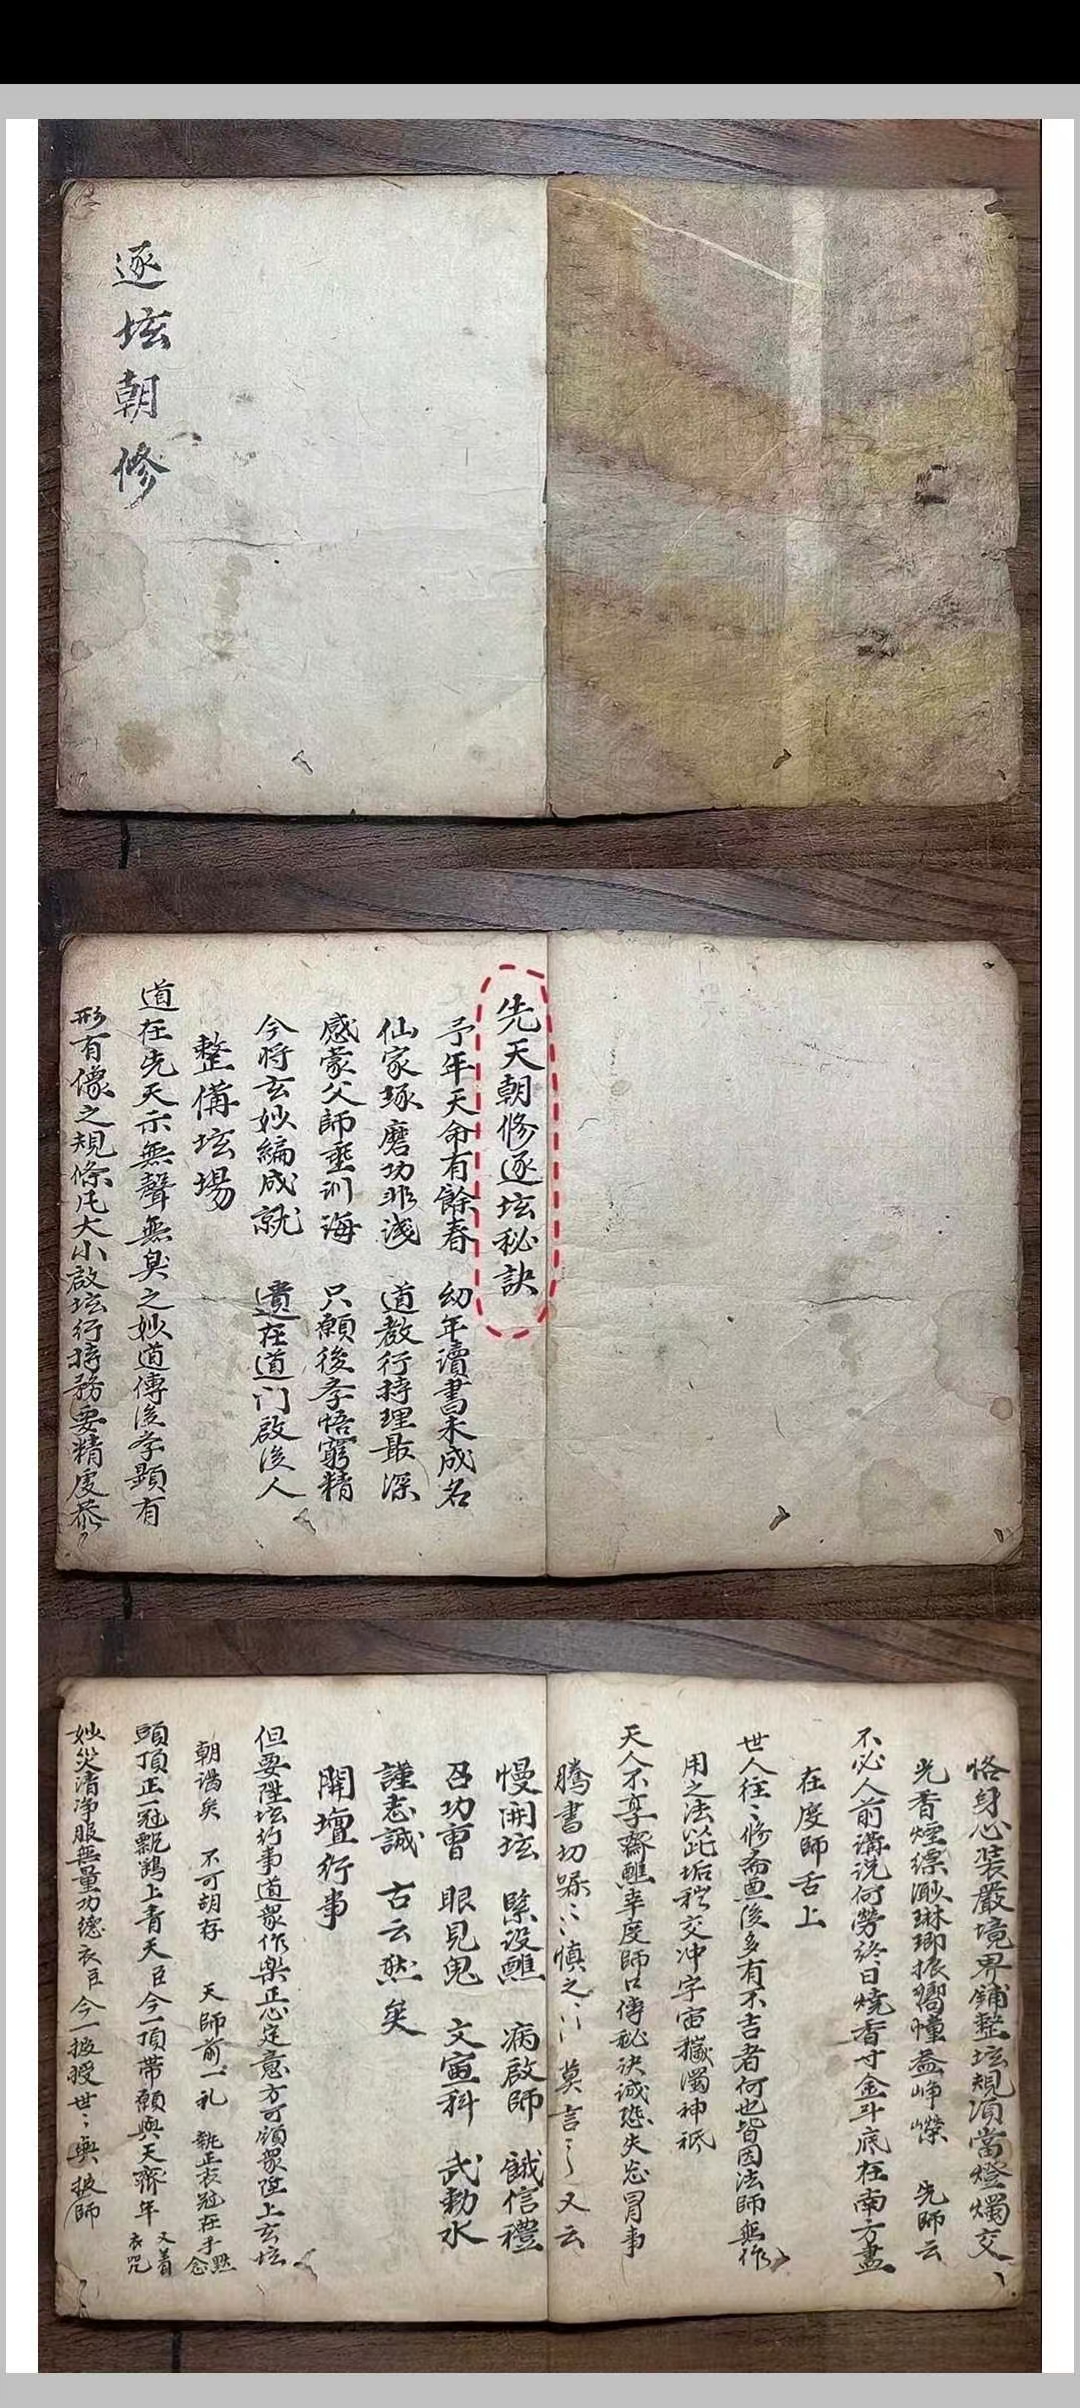 逐坛朝修
先天朝修逐坛秘訣
予年天命有餘春 幼年讀書未成名
仙家琢磨功非浅 道教行持理最深
感蒙父師垂训海 只願後学悟窮精
今将玄妙編成就 遺在道门啟後人
整俻坛場
道在先天示無聲無臭之妙道傳後学顯有
形有像之規條凡大小啟坛行持務要精虔恭
恪身心装嚴境界鋪整坛規湏當燈燭交
光香煙缥渺琳瑯振响幢蓋峥嶸 先師云
不必人前講说何勞終日燒香寸金斗底在南方盡
在度師舌上
世人往〻修斋奠後多有不吉者何也皆因法師無作
用之法以此垢秽交冲宇宙穢濁神祇
天人不享齋醮幸度師口傳秘诀诚恐失忘冒事
騰書切嘱〻〻慎之〻〻莫言〻〻又云
慢開坛 緊设醮 病啟師 餓信禮
召功曹 眼見鬼 文宣科 武勅水
謹志誠 古云然矣
開壇行事
但要陞坛行事道眾作樂正心定意方可領眾陞上玄坛
朝谒矣 不可胡存 天師前一礼 執正衣冠在手默念
頭頂正一冠飄鹤上青天臣今一頂带願與天齊年 又着衣咒
妙災清净服無量功德衣臣今一披授世〻與披師